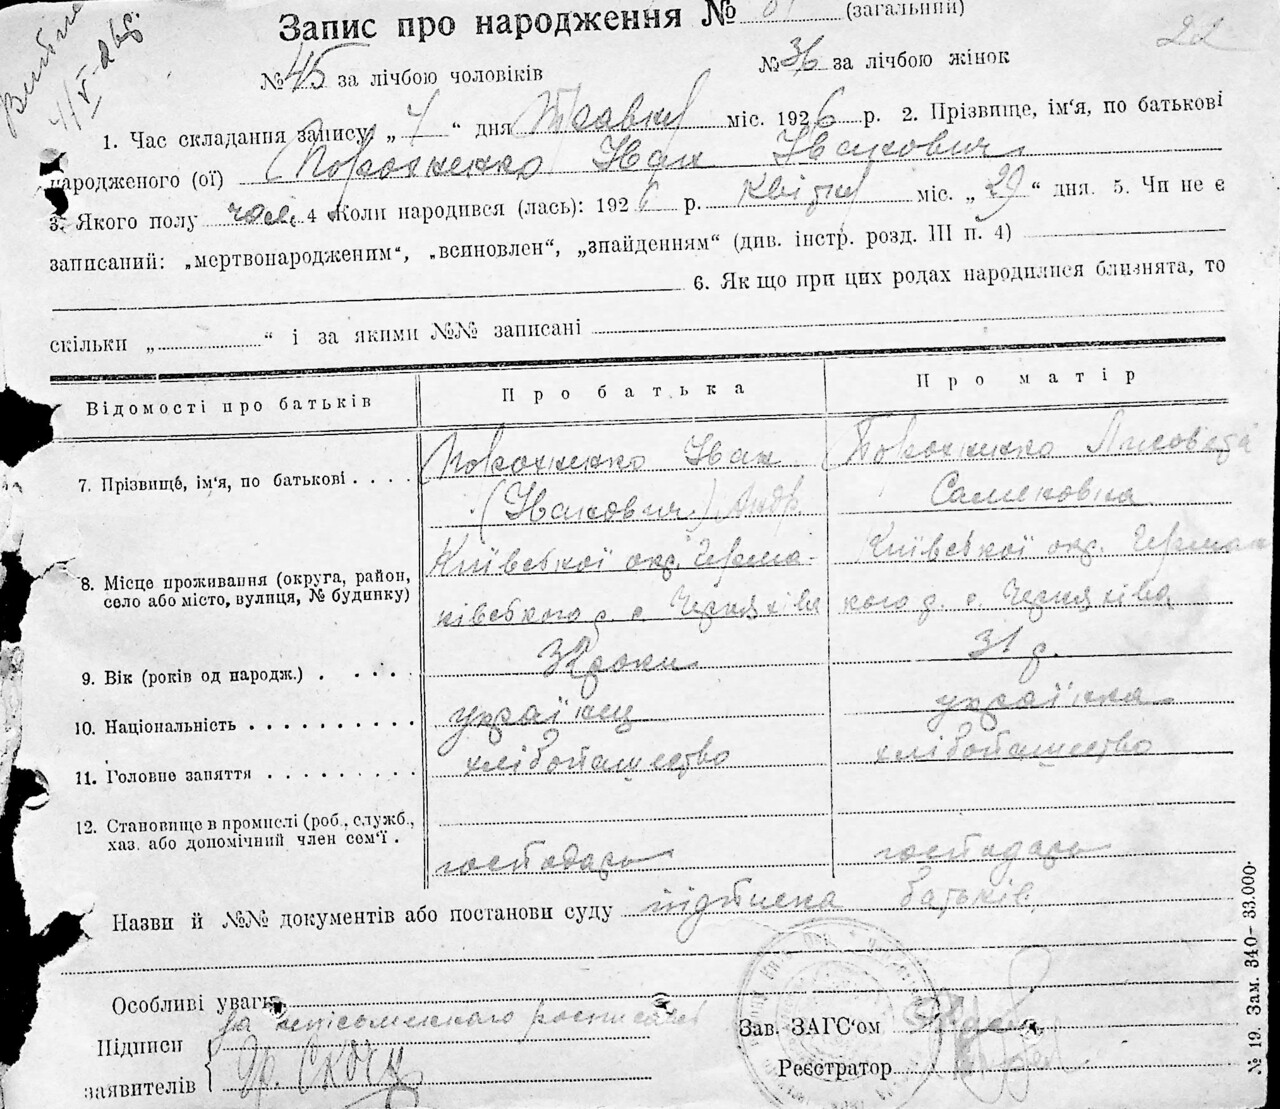 Запис про народження № 81 (загальний)
22
№ 45 за лічбою чоловіків № 36 за лічбою жінок
1. Час складання запису „ 4 “ дня Травня міс. 1926 р. 2. Прізвище, ім‘я, по батькові
народженого (ої) Порохненко Іван Іванович
3. Якого полу чол. 4 Коли народився (лась): 1926 р. Квітня міс. „ 29 “ дня. 5. Чи не є
записаний: „мертвонародженим“, „всиновлен“, „знайденням“ (див. інстр. розд. III п. 4)
6. Як що при цих родах народилися близнята, то
скільки „ “ і за якими №№ записані
Відомості про батьків Про батька Про матір
7. Прізвище, ім‘я, по батькові . . . . Порохненко Іван Порохненко Лисовета
(Іванович) Андр. Саменовна
8. Місце проживання (округа, район, Київської окр. Герма- Київської окр. Герман
село або місто, вулиця, № будинку) нівського р. с. Черняхів кого р. с. Черняхів
9. Вік (років од народж.) . . . . . 32 роки 31 р.
10. Національність . . . . . . . . . . українец українка
11. Головне заняття . . . . . . . . . хліборашество хліборашество
12. Становище в промислі (роб., служб.,
хаз. або допомічний член сем‘ї . господарь господарь
Назви й №№ документів або постанови суду підписка батьків
Особливі уваги
за неписьменного росписався
Підписи Зав. ЗАГС‘ом
заявителів Гр. Скочец Реєстратор
№ 19. Зам. 340—33.000.